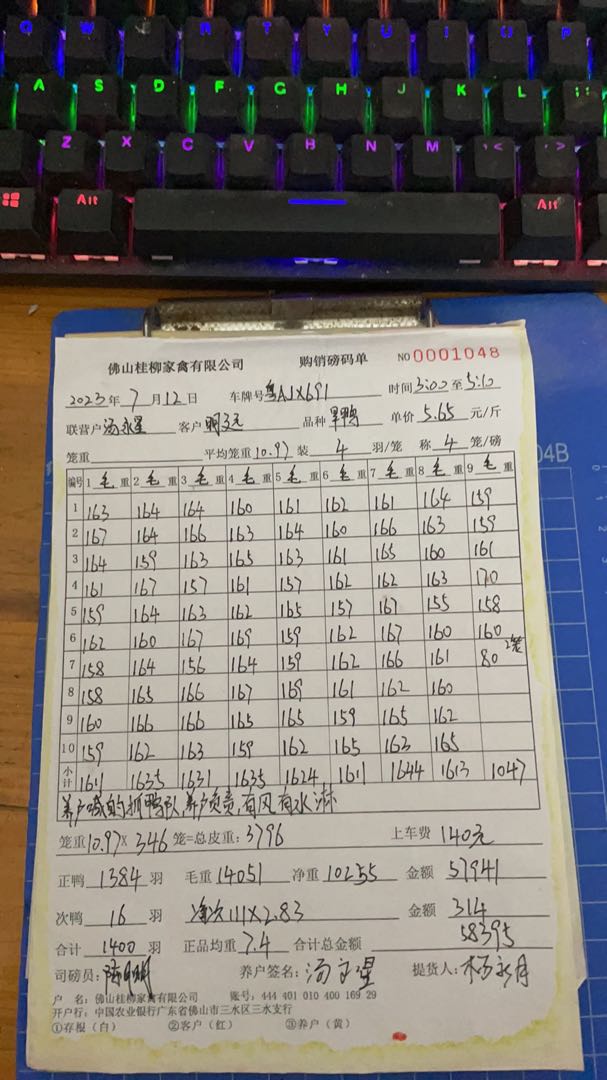 Q W T Y U I O P
A S D F G H J K L ; :
Z X C V B N M < , > .
Alt Alt
佛山桂柳家禽有限公司 购销磅码单 NO 0001048
2023年 7月12日 车牌号 粤AJX691 时间 3:00 至 5:10
联营户 汤永星 客户 品种 旱鸭 单价 5.65 元/斤
笼重 平均笼重 10.97 装 4 羽/笼 称 4 笼/磅
编号 1 毛 重 2 毛 重 3 毛 重 4 毛 重 5 毛 重 6 毛 重 7 毛 重 8 毛 重 9 毛 重
1 163 164 164 160 161 162 161 164 159
2 167 164 166 163 164 160 166 163 159
3 164 159 163 165 163 161 165 160 161
4 161 167 157 161 157 162 162 163 170
5 159 164 163 162 165 157 167 155 158
6 162 160 167 169 159 162 167 160 160
7 158 164 156 164 159 162 166 161 80 2笼
8 158 165 166 167 169 161 162 160
9 160 166 166 165 165 159 165 162
10 159 162 163 159 162 165 163 165
小计 1611 1635 1631 1635 1624 1611 1644 1613 1047
养户喊的抓鸭队,养户负责,有风有水淋
笼重 10.97 × 346 笼=总皮重: 3796 上车费 140元
正鸭 1384 羽 毛重 14051 净重 10255 金额 57941
次鸭 16 羽 净次 111×2.83 金额 314
合计 1400 羽 正品均重 7.4 合计总金额 58395
司磅员: 养户签名: 提货人:
户 名: 佛山桂柳家禽有限公司 账号: 444 401 010 400 169 29
开户行: 中国农业银行广东省佛山市三水区三水支行
①存根(白) ②客户(红) ③养户(黄)
04B